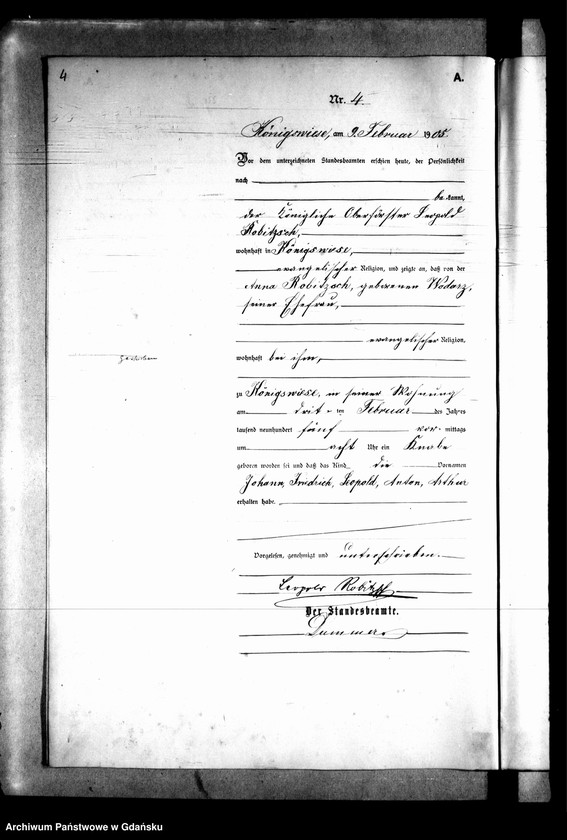 4
A.
Nr. 4
Königswiese, am 9. Februar 1905
Vor dem unterzeichneten Standesbeamten erschien heute, der Persönlichkeit
nach
be kannt,
der Königliche Oberförster Leopold
Robitzsch,
wohnhaft in Königswiese,
evangelischer Religion, und zeigte an, daß von der
Anna Robitzsch, geborenen Wodarz,
seiner Ehefrau,
evangelischer Religion,
wohnhaft bei ihm,
zu Königswiese, in seiner Wohnung
am drit ten Februar des Jahres
tausend neunhundert fünf vor mittags
um acht Uhr ein Knabe
geboren worden sei und daß das Kind die Vornamen
Johann, Friedrich, Leopold, Anton, Arthur
erhalten habe.
Vorgelesen, genehmigt und unterschrieben.
Leopold Robitzsch
Der Standesbeamte.
Archiwum Państwowe w Gdańsku